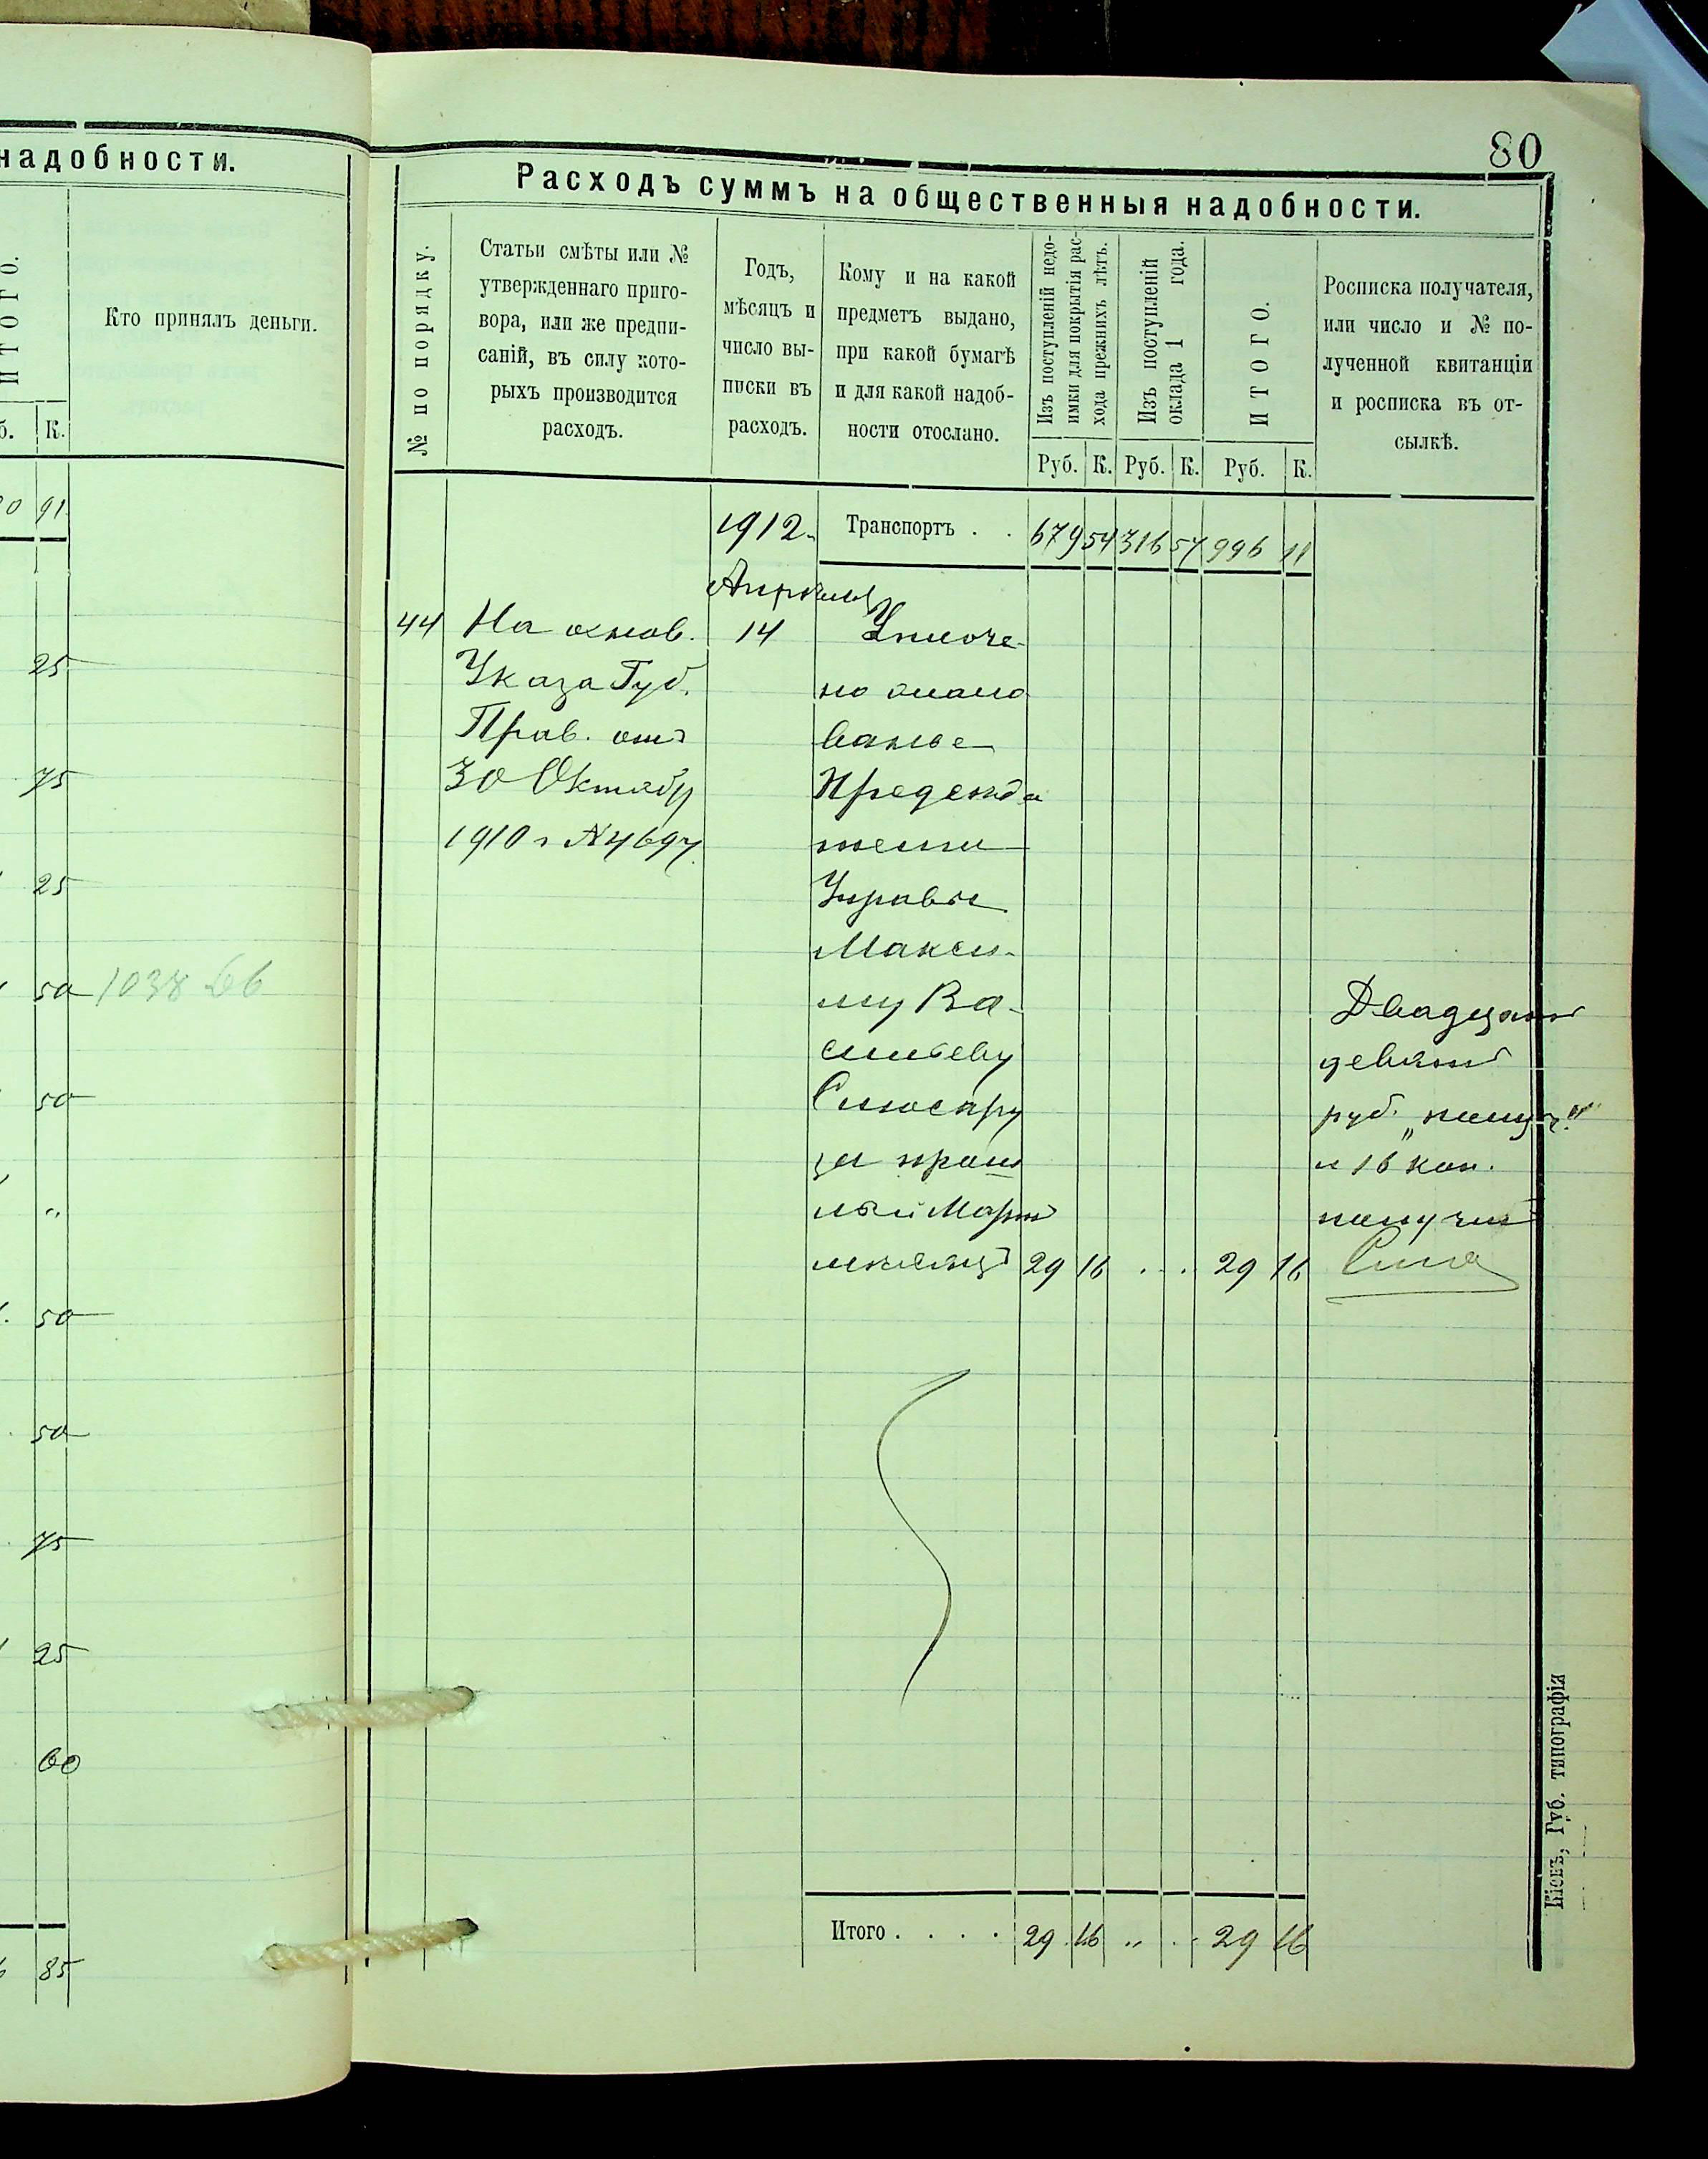 надобности.
И Т О Г О.
Кто принялъ деньги.
К.
91
25
75
25
50 1038 66
50
"
50
50
75
25
60
85
80
Расходъ суммъ на общественныя надобности.
№ по порядку.
Статьи смѣты или №
утвержденнаго приго-
вора, или же предпи-
саній, въ силу кото-
рыхъ производится
расходъ.
Годъ,
мѣсяцъ и
число вы-
писки въ
расходъ.
Кому и на какой
предметъ выдано,
при какой бумагѣ
и для какой надоб-
ности отослано.
Изъ поступленій недо-
имки для покрытія рас-
хода прежнихъ лѣтъ.
Изъ поступленій
оклада 1 года.
И Т О Г О.
Росписка получателя,
или число и № по-
лученной квитанціи
и росписка въ от-
сылкѣ.
Руб. К. Руб. К. Руб. К.
1912. Транспортъ . . 679 54 316 57 996 11
Апрѣля
44 На основ. 14 Уплоче-
Указа Губ. но жало
Прав. отъ ванье
30 Октябр
1910 г № 4697
Управы
Макси-
му Ва-
сильеву
Слюсару
за прош
лый Мартъ
мѣсяцъ 29 16 . . 29 16
Двадцать
девять
руб.
и 16 коп.
получил
Итого . . . . 29 16 " .. 29 16
Кіевъ, Губ. типографія